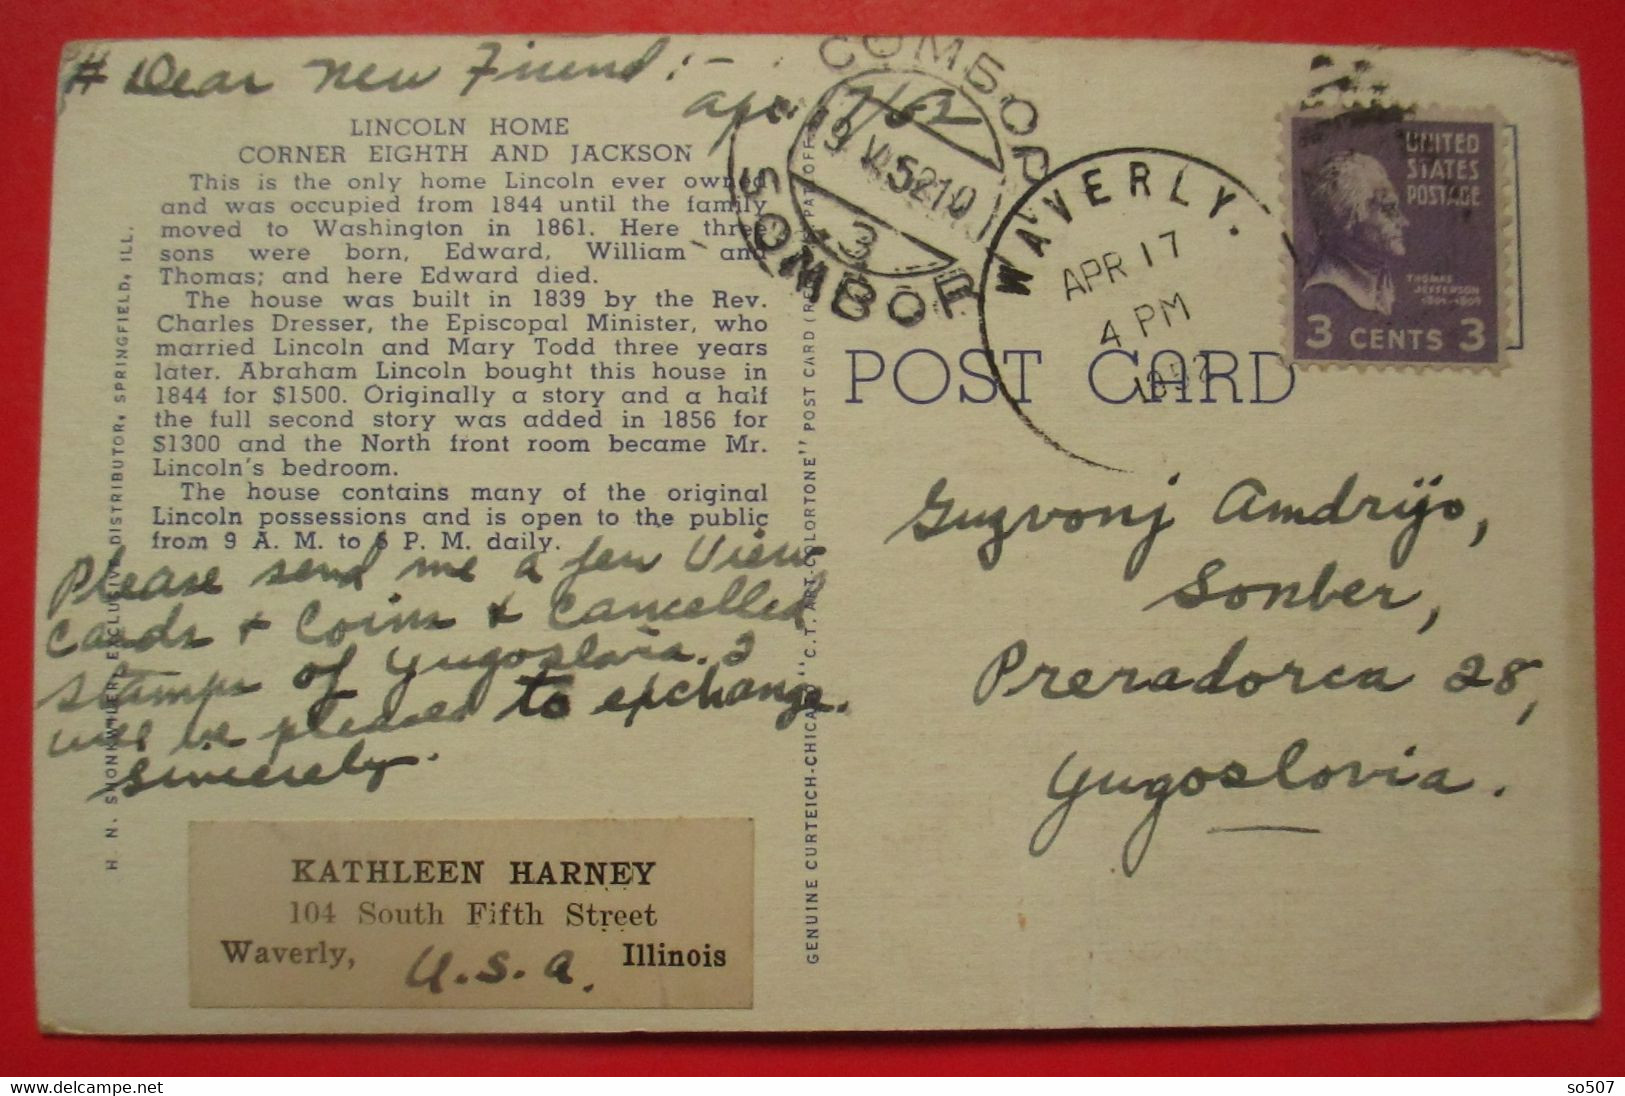 # Dear New Friend:-
LINCOLN HOME
CORNER EIGHTH AND JACKSON
This is the only home Lincoln ever owned
and was occupied from 1844 until the family
moved to Washington in 1861. Here three
sons were born, Edward, William and
Thomas; and here Edward died.
The house was built in 1839 by the Rev.
Charles Dresser, the Episcopal Minister, who
married Lincoln and Mary Todd three years
later. Abraham Lincoln bought this house in
1844 for $1500. Originally a story and a half
the full second story was added in 1856 for
$1300 and the North front room became Mr.
Lincoln's bedroom.
The house contains many of the original
Lincoln possessions and is open to the public
from 9 A. M. to P. M. daily.
Please send me a few View
Cards + Coins + Cancelled
stamps of Yugoslavia. I
will be pleased to exchange.
Sincerely.
KATHLEEN HARNEY
104 South Fifth Street
Waverly, U.S.A. Illinois
H. N. SHONKWILER, EXCLUSIVE DISTRIBUTOR, SPRINGFIELD, ILL.
GENUINE CURTEICH-CHICAGO "C.T. ART-COLORTONE" POST CARD (REG. PAT. OFF.
СОМБОР
9 V 52 10
3
SOMBOR
WAVERLY.
APR 17
4 PM
1952
UNITED
STATES
POSTAGE
THOMAS
JEFFERSON
1801-1809
3 CENTS 3
POST CARD
Guzvonj Andrijo,
Sonber,
Preradorca 28,
Yugoslovia.
so507